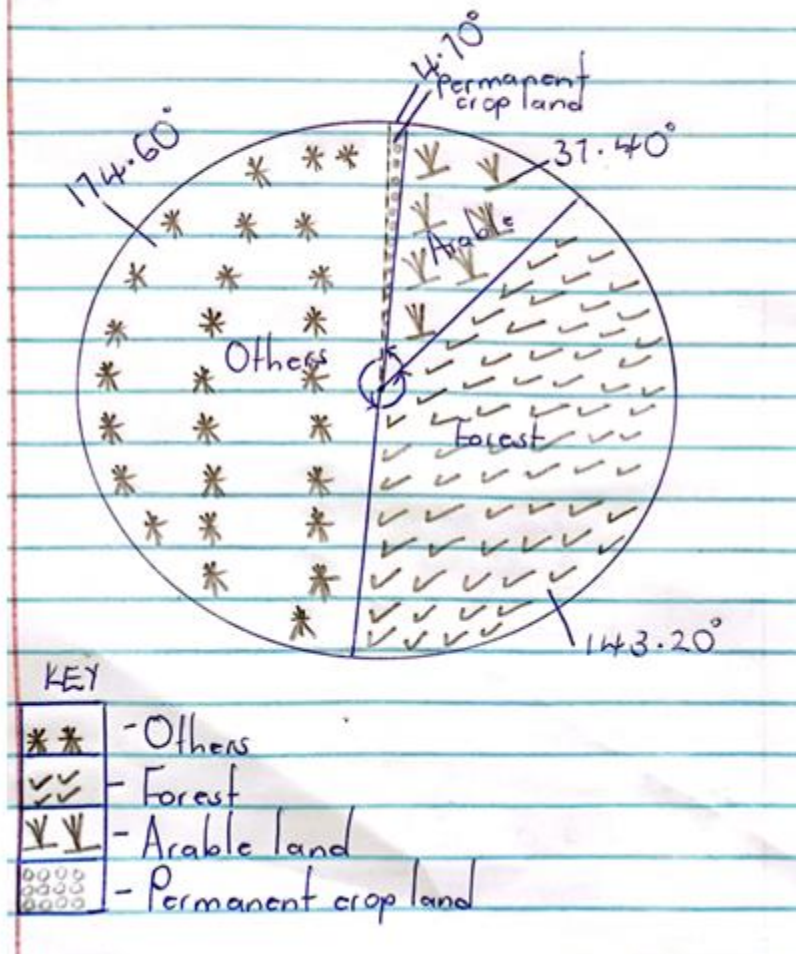 4.70°
Permanent
crop land
37.40°
174.60°
Arable
Others
Forest
143.20°
KEY
- Others
- Forest
- Arable land
- Permanent crop land